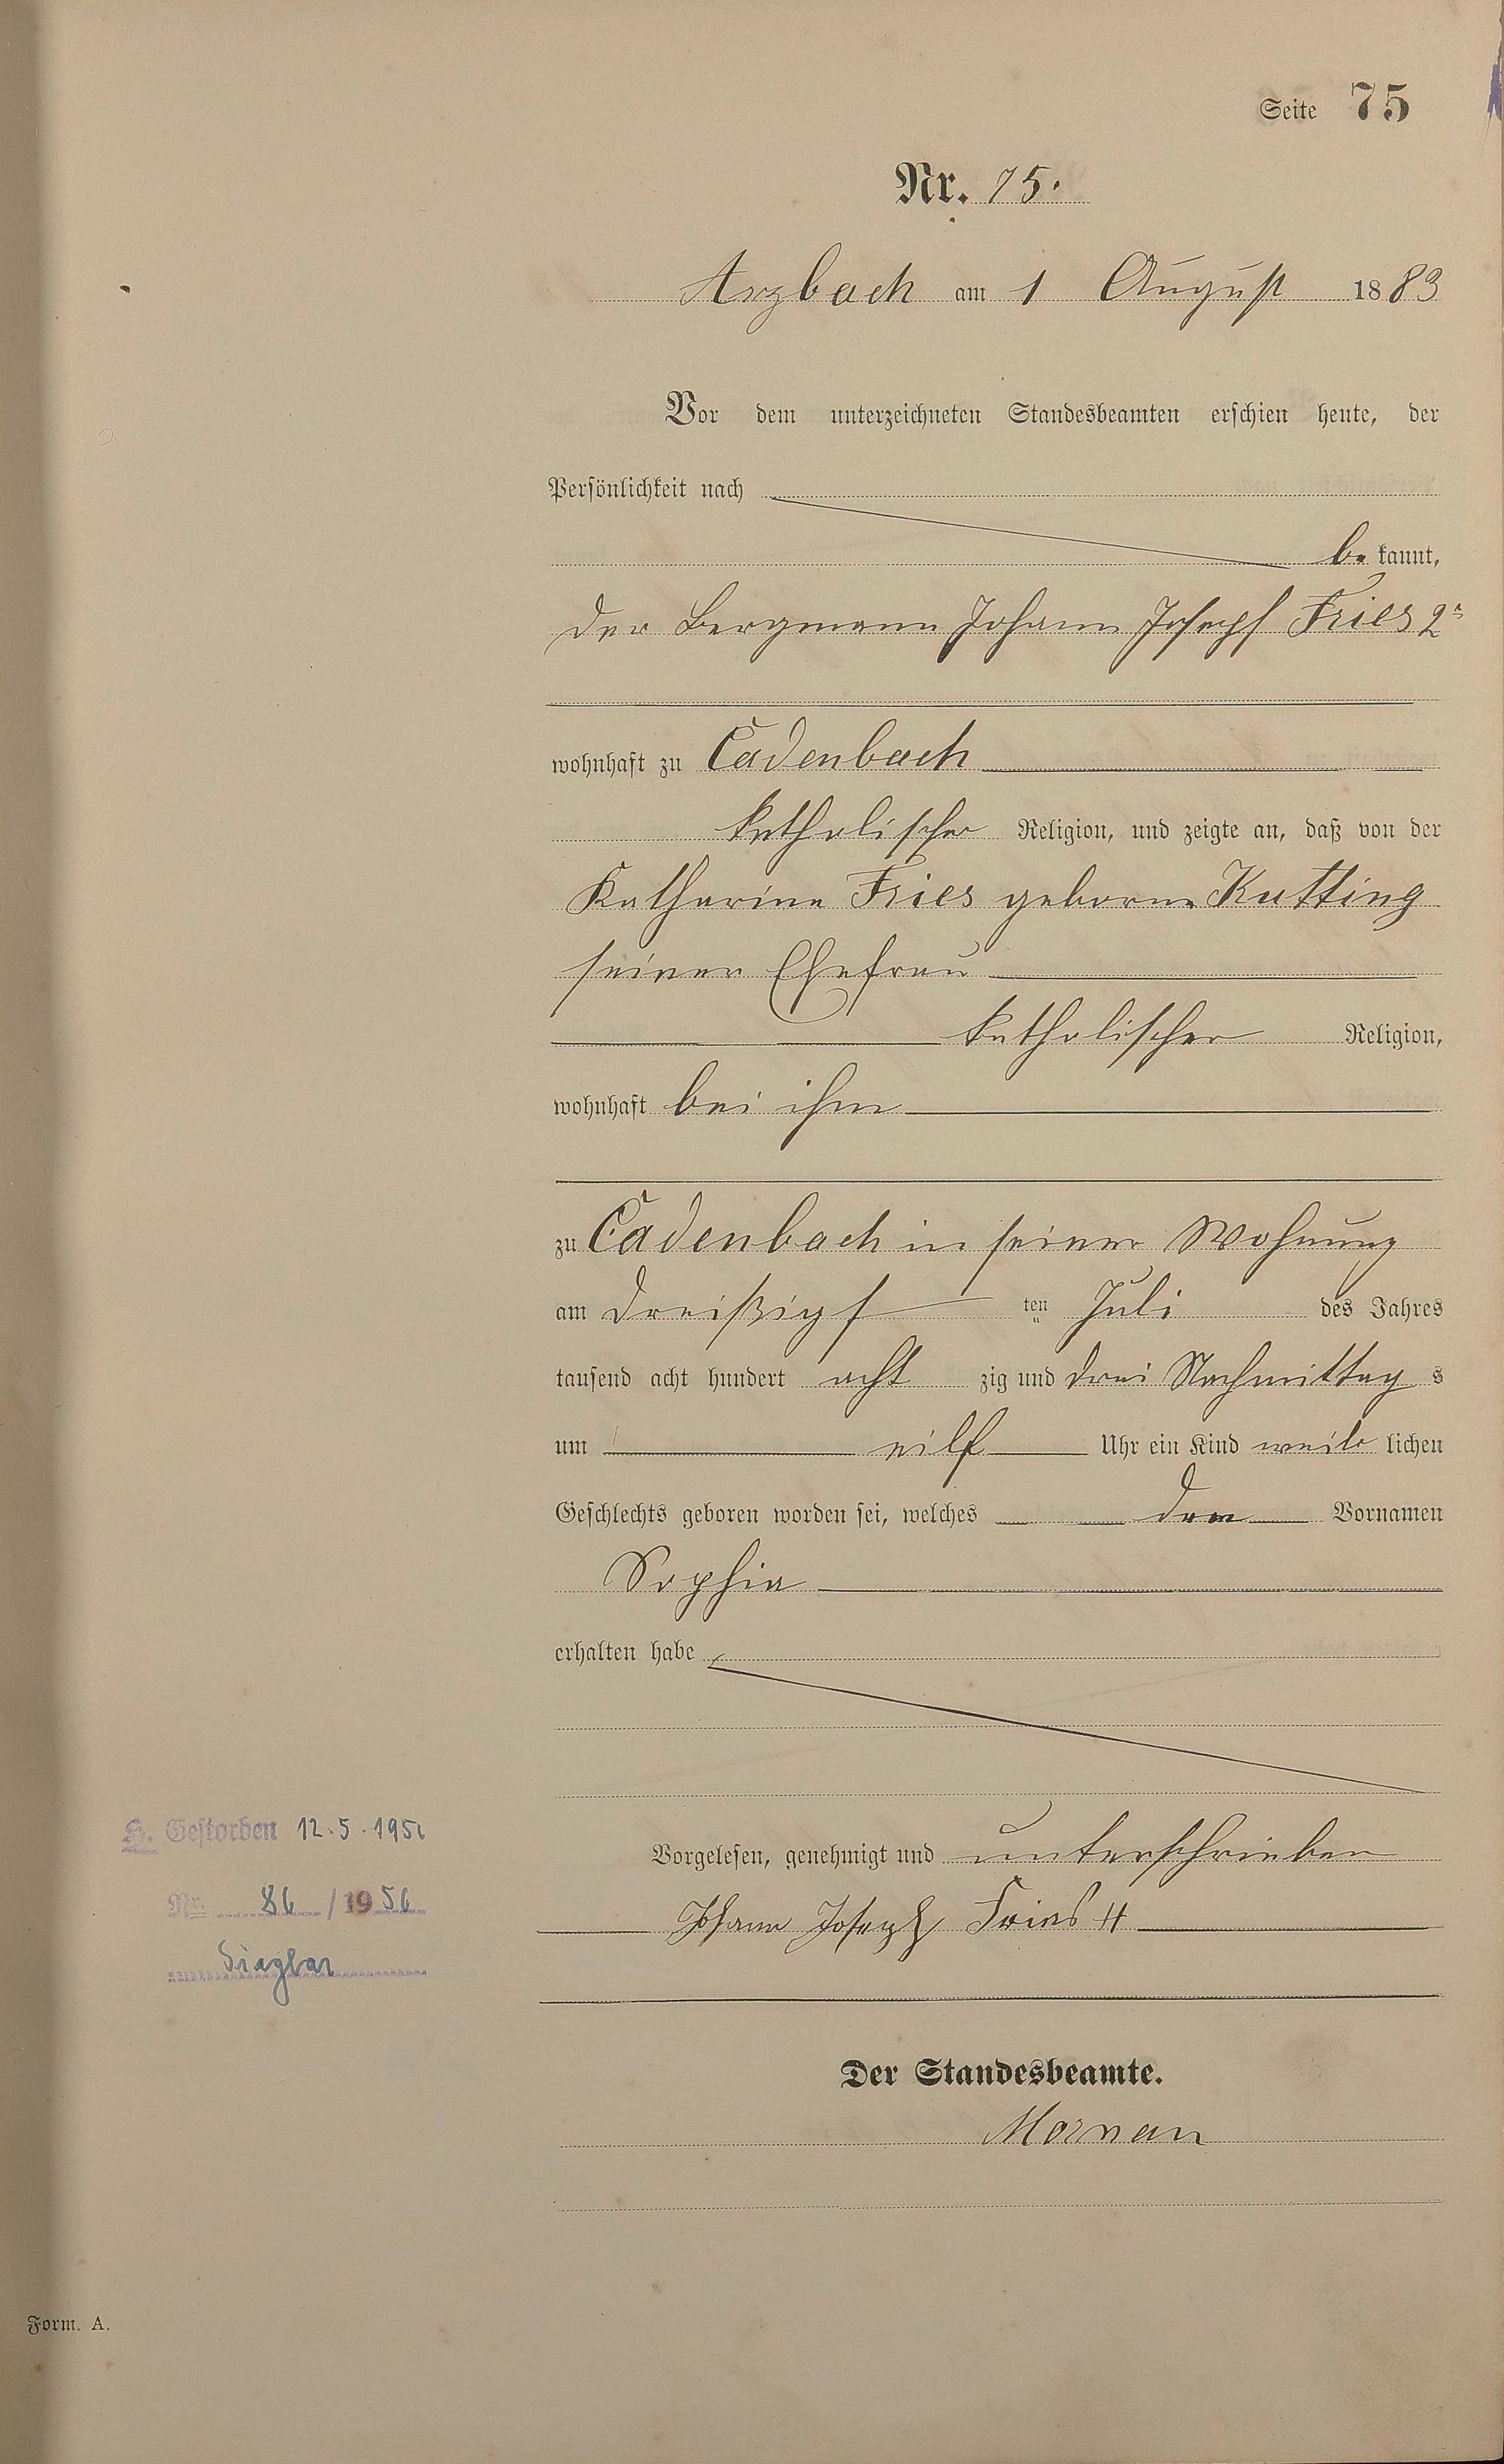 Seite 75
Nr. 75.
Arzbach am 1 August 1883
Vor dem unterzeichneten Standesbeamten erschien heute, der
Persönlichkeit nach
be kannt,
der Bergmann Johann Joseph Fries 2r
wohnhaft zu Cadenbach
katholischer Religion, und zeigte an, daß von der
Katharina Fries geborne Kutting
seiner Ehefrau
katholischer Religion,
wohnhaft bei ihm
zu Cadenbach in seiner Wohnung
am dreißigs ten Juli des Jahres
tausend acht hundert acht zig und drei Nachmittag s
um eilf Uhr ein Kind weib lichen
Geschlechts geboren worden sei, welches den Vornamen
Sophia
erhalten habe
Vorgelesen, genehmigt und unterschrieben
Johann Joseph Fries II
Der Standesbeamte.
H. Gestorben 12.5.195
Nr. 86 / 1956
Form. A.